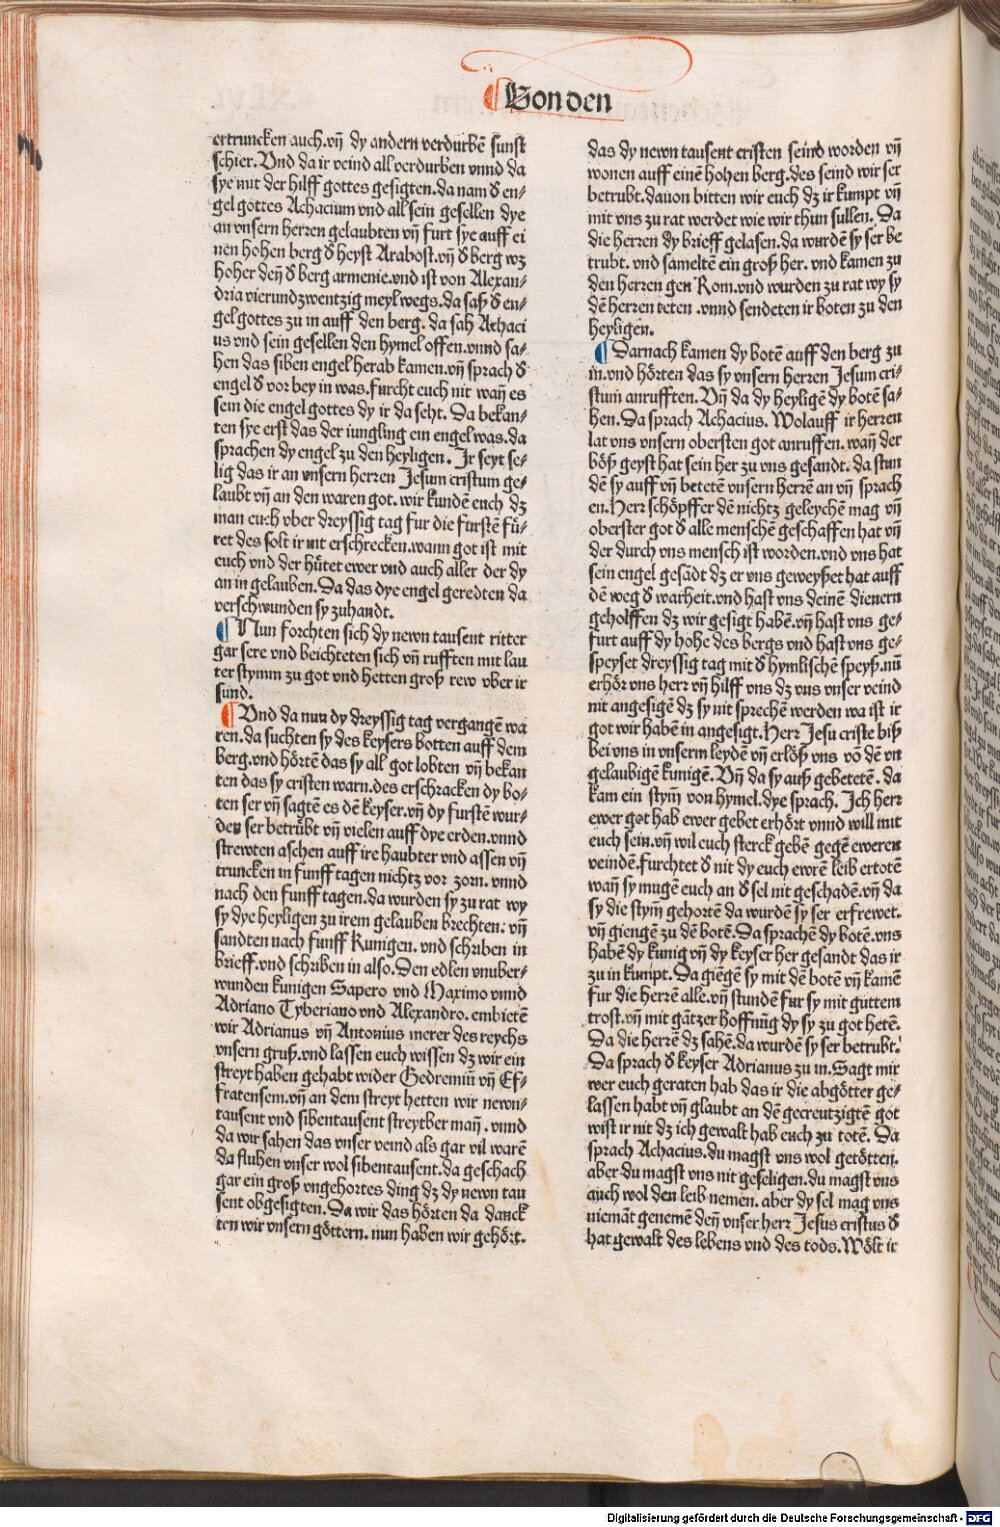 Von den
ertruncken auch.vn̄ dy andern verdurbē sunst
schier.Vnd da ir veind all verdurben vnnd da
sye mit der hilff gottes gesigten.da nam d̕ en⸗
gel gottes Achacium vnd all sein gesellen dye
an vnsern herzen gelaubten vn̄ furt sye auff ei
nen hohen berg d̕ heyst Arabost.vn̄ d̕ berg wz
hoher den̄ d̕ berg armenie.vnd ist von Alexan⸗
dria vierundzwentzig meyl wegs.da saß d̕ en⸗
gel gottes zu in auff den berg. da sah Achaci
us vnd sein gesellen den hymel offen.vnnd sa⸗
hen das siben engel herab kamen.vn̄ sprach d̕
engel d̕ vor bey in was.furcht euch nit wan̄ es
sein die engel gottes dy ir da seht. Da bekan⸗
ten sye erst das der iungling ein engel was.da
sprachen dy engel zu den heyligen. Ir seyt se⸗
lig das ir an vnsern herren Jesum cristum ge⸗
laubt vn̄ an den waren got. wir kundē euch dz
man euch vber dreyssig tag fur die furstē fü⸗
ret des solt ir nit erschrecken.wann got ist mit
euch vnd der hütet ewer vnd auch aller der dy
an in gelauben. Da das dye engel geredten da
verschwunden sy zuhandt.
¶ Nun forchten sich dy newn tausent ritter
gar sere vnd beichteten sich vn̄ rufften mit lau
ter stymm zu got vnd hetten groß rew vber ir
sund.
¶ Vnd da nun dy dreyssig tag vergangē wa
ren.da suchten sy des keysers botten auff dem
berg.vnd hörtē das sy all got lobten vn̄ bekan
ten das sy cristen warn.des erschracken dy bo⸗
ten ser vn̄ sagtē es dē keyser.vn̄ dy furstē wur⸗
den ser betrübt vn̄ vielen auff dye erden.vnnd
strewten aschen auff ire haubter vnd assen vn̄
truncken in funff tagen nichtz vor zorn. vnnd
nach den funff tagen.da wurden sy zu rat wy
sy dye heyligen zu irem gelauben brechten: vn̄
sandten nach funff Kunigen. vnd schriben in
brieff.vnd schriben in also.Den edlen vnuber⸗
wunden kunigen Sapero vnd Maximo vnnd
Adriano Tyberiano vnd Alexandro. embietē
wir Adrianus vn̄ Antonius merer des reychs
vnsern gruß.vnd lassen euch wissen dz wir ein
streyt haben gehabt wider Gedremiū vn̄ Ef⸗
fratensem.vn̄ an dem streyt hetten wir newn⸗
tausent vnd sibentausent streytber man̄ . vnnd
da wir sahen das vnser veind als gar vil warē
da fluhen vnser wol sibentausent.da geschach
gar ein groß vngehortes ding dz dy newn tau
sent obgesigten. Da wir das hörten da danck
ten wir vnsern göttern. nun haben wir gehört.
das dy newn tausent cristen seind worden vn̄
wonen auff einē hohen berg.des seind wir ser
betrubt.dauon bitten wir euch dz ir kumpt vn̄
mit vns zu rat werdet wie wir thun sullen. Da
die herren dy brieff gelasen.da wurdē sy ser be
trubt. vnd sameltē ein groß her. vnd kamen zu
den herren gen Rom.vnd wurden zu rat wy sy
dē herzen teten .vnnd sendeten ir boten zu den
heyligen.
¶ Darnach kamen dy botē auff den berg zu
in.vnd hörten das sy vnsern herren Jesum cri⸗
stum anrufften. Vn̄ da dy heyligē dy botē sa⸗
hen. Da sprach Achacius. Wolauff ir herren
lat vns vnsern obersten got anruffen. wan̄ der
böß geyst hat sein her zu vns gesandt. da stun
dē sy auff vn̄ betetē vnsern herrē an vn̄ sprach
en. Herr schöpffer dē nichtz geleychē mag vn̄
oberster got d̕ alle menschē geschaffen hat vn̄
der durch vns mensch ist worden.vnd vns hat
sein engel gesādt dz er vns geweyßet hat auff
dē weg d̕ warheit.vnd hast vns deinē dienern
geholffen dz wir gesigt habē.vn̄ hast vns ge⸗
furt auff dy hohe des bergs vnd hast vns ge⸗
speyset dreyssig tag mit d̕ hymlischē speyß.nū
erhör vns herr vn̄ hilff vns dz vns vnser veind
nit angesigē dz sy nit sprechē werden wa ist ir
got wir habē in angesigt.Herr Jesu criste biß
bei vns in vnserm leydē vn̄ erlöß vns vō dē vn
gelaubigē kunigē. Vn̄ da sy auß gebetetē . da
kam ein stym̄ von hymel.dye sprach. Ich herr
ewer got hab ewer gebet erhört vnnd will mit
euch sein.vn̄ wil euch sterck gebē gegē eweren
veindē.furchtet d̕ nit dy euch ewrē leib ertotē
wan̄ sy mugē euch an d̕ sel nit geschadē.vn̄ da
sy die stym̄ gehortē da wurdē sy ser erfrewet.
vn̄ giengē zu dē botē.Da sprachē dy botē.vns
habē dy kunig vn̄ dy keyser her gesandt das ir
zu in kumpt. Da giēgē sy mit dē botē vn̄ kamē
fur die herrē alle.vn̄ stundē fur sy mit guttem
trost.vn̄ mit gātzer hoffnūg dy sy zu got hetē.
Da die herrē dz sahē.da wurdē sy ser betrubt.
Da sprach d̕ keyser Adrianus zu in.Sagt mir
wer euch geraten hab das ir die abgötter ge⸗
lassen habt vn̄ glaubt an dē gecreutzigtē got
wist ir nit dz ich gewalt hab euch zu totē. Da
sprach Achacius.du magst vns wol getötten.
aber du magst vns nit geseligen.du magst vns
auch wol den leib nemen. aber dy sel mag vns
niemāt genemē den̄ vnser herr Jesus cristus d̕
hat gewalt des lebens vnd des tods.Wölt ir
Digitalisierung gefördert durch die Deutsche Forschungsgemeinschaft - DFG